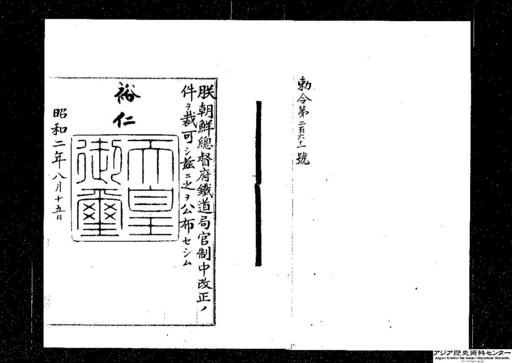 勅令第二百六十一號
朕朝鮮總督府鐵道局官制中改正ノ
件ヲ裁可シ茲ニ之ヲ公布セシム
裕仁
天皇
御璽
昭和二年八月十五日
アジア歴史資料センター
Japan Center for Asian Historical Records